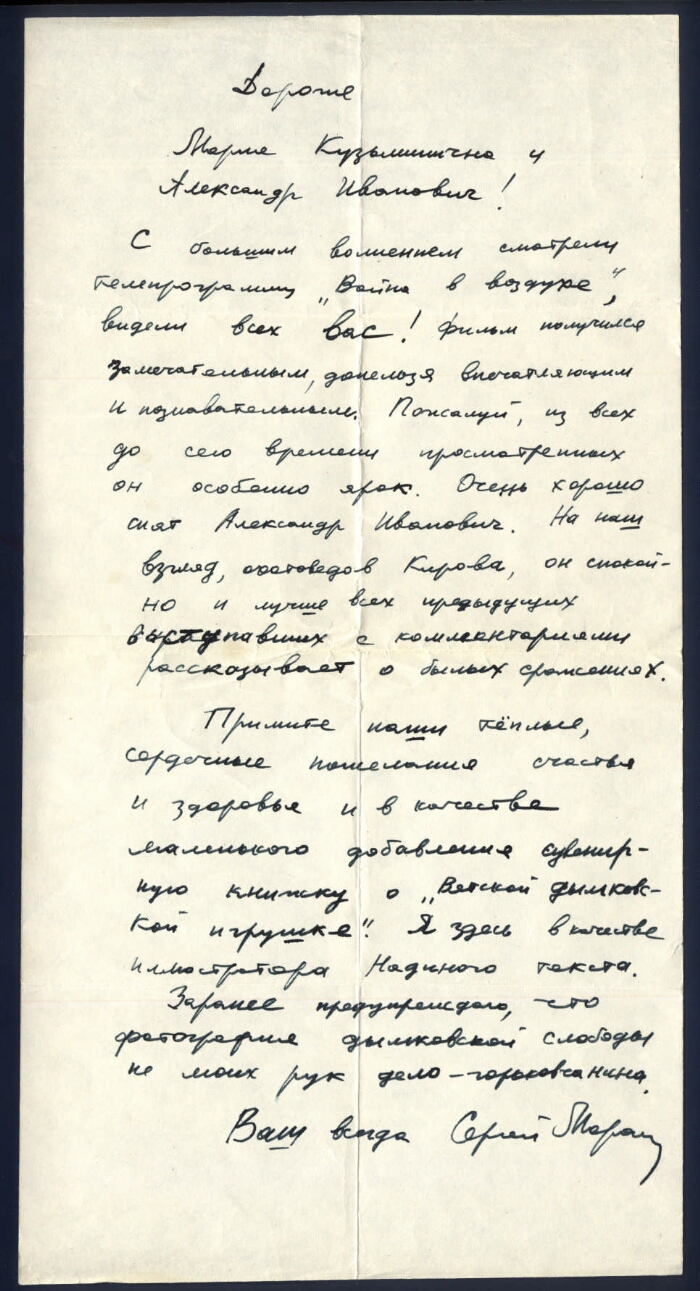 Дорогие
Мария Кузьминична и
Александр Иванович!
С большим волнением смотрели
телепрограмму „Война в воздухе“,
видели всех вас! Фильм получился
замечательным, донельзя впечатляющим
и познавательным. Пожалуй, из всех
до сего времени просмотренных
он особенно ярок. Очень хорошо
снят Александр Иванович. На наш
взгляд, Кирова, он спокой-
но и лучше всех предыдущих
выступавших с комментариями
рассказывает о былых сражениях.
Примите наши тёплые,
сердечные пожелания счастья
и здоровья и в качестве
маленького добавления сувенир-
ную книжку о „Вятской дымков-
ской игрушке“. Я здесь в качестве
иллюстратора Надиного текста.
Заранее предупреждаю, что
фотографие дымковской слободы
не моих рук дело – горьковчанина.
Ваш всегда Сергей